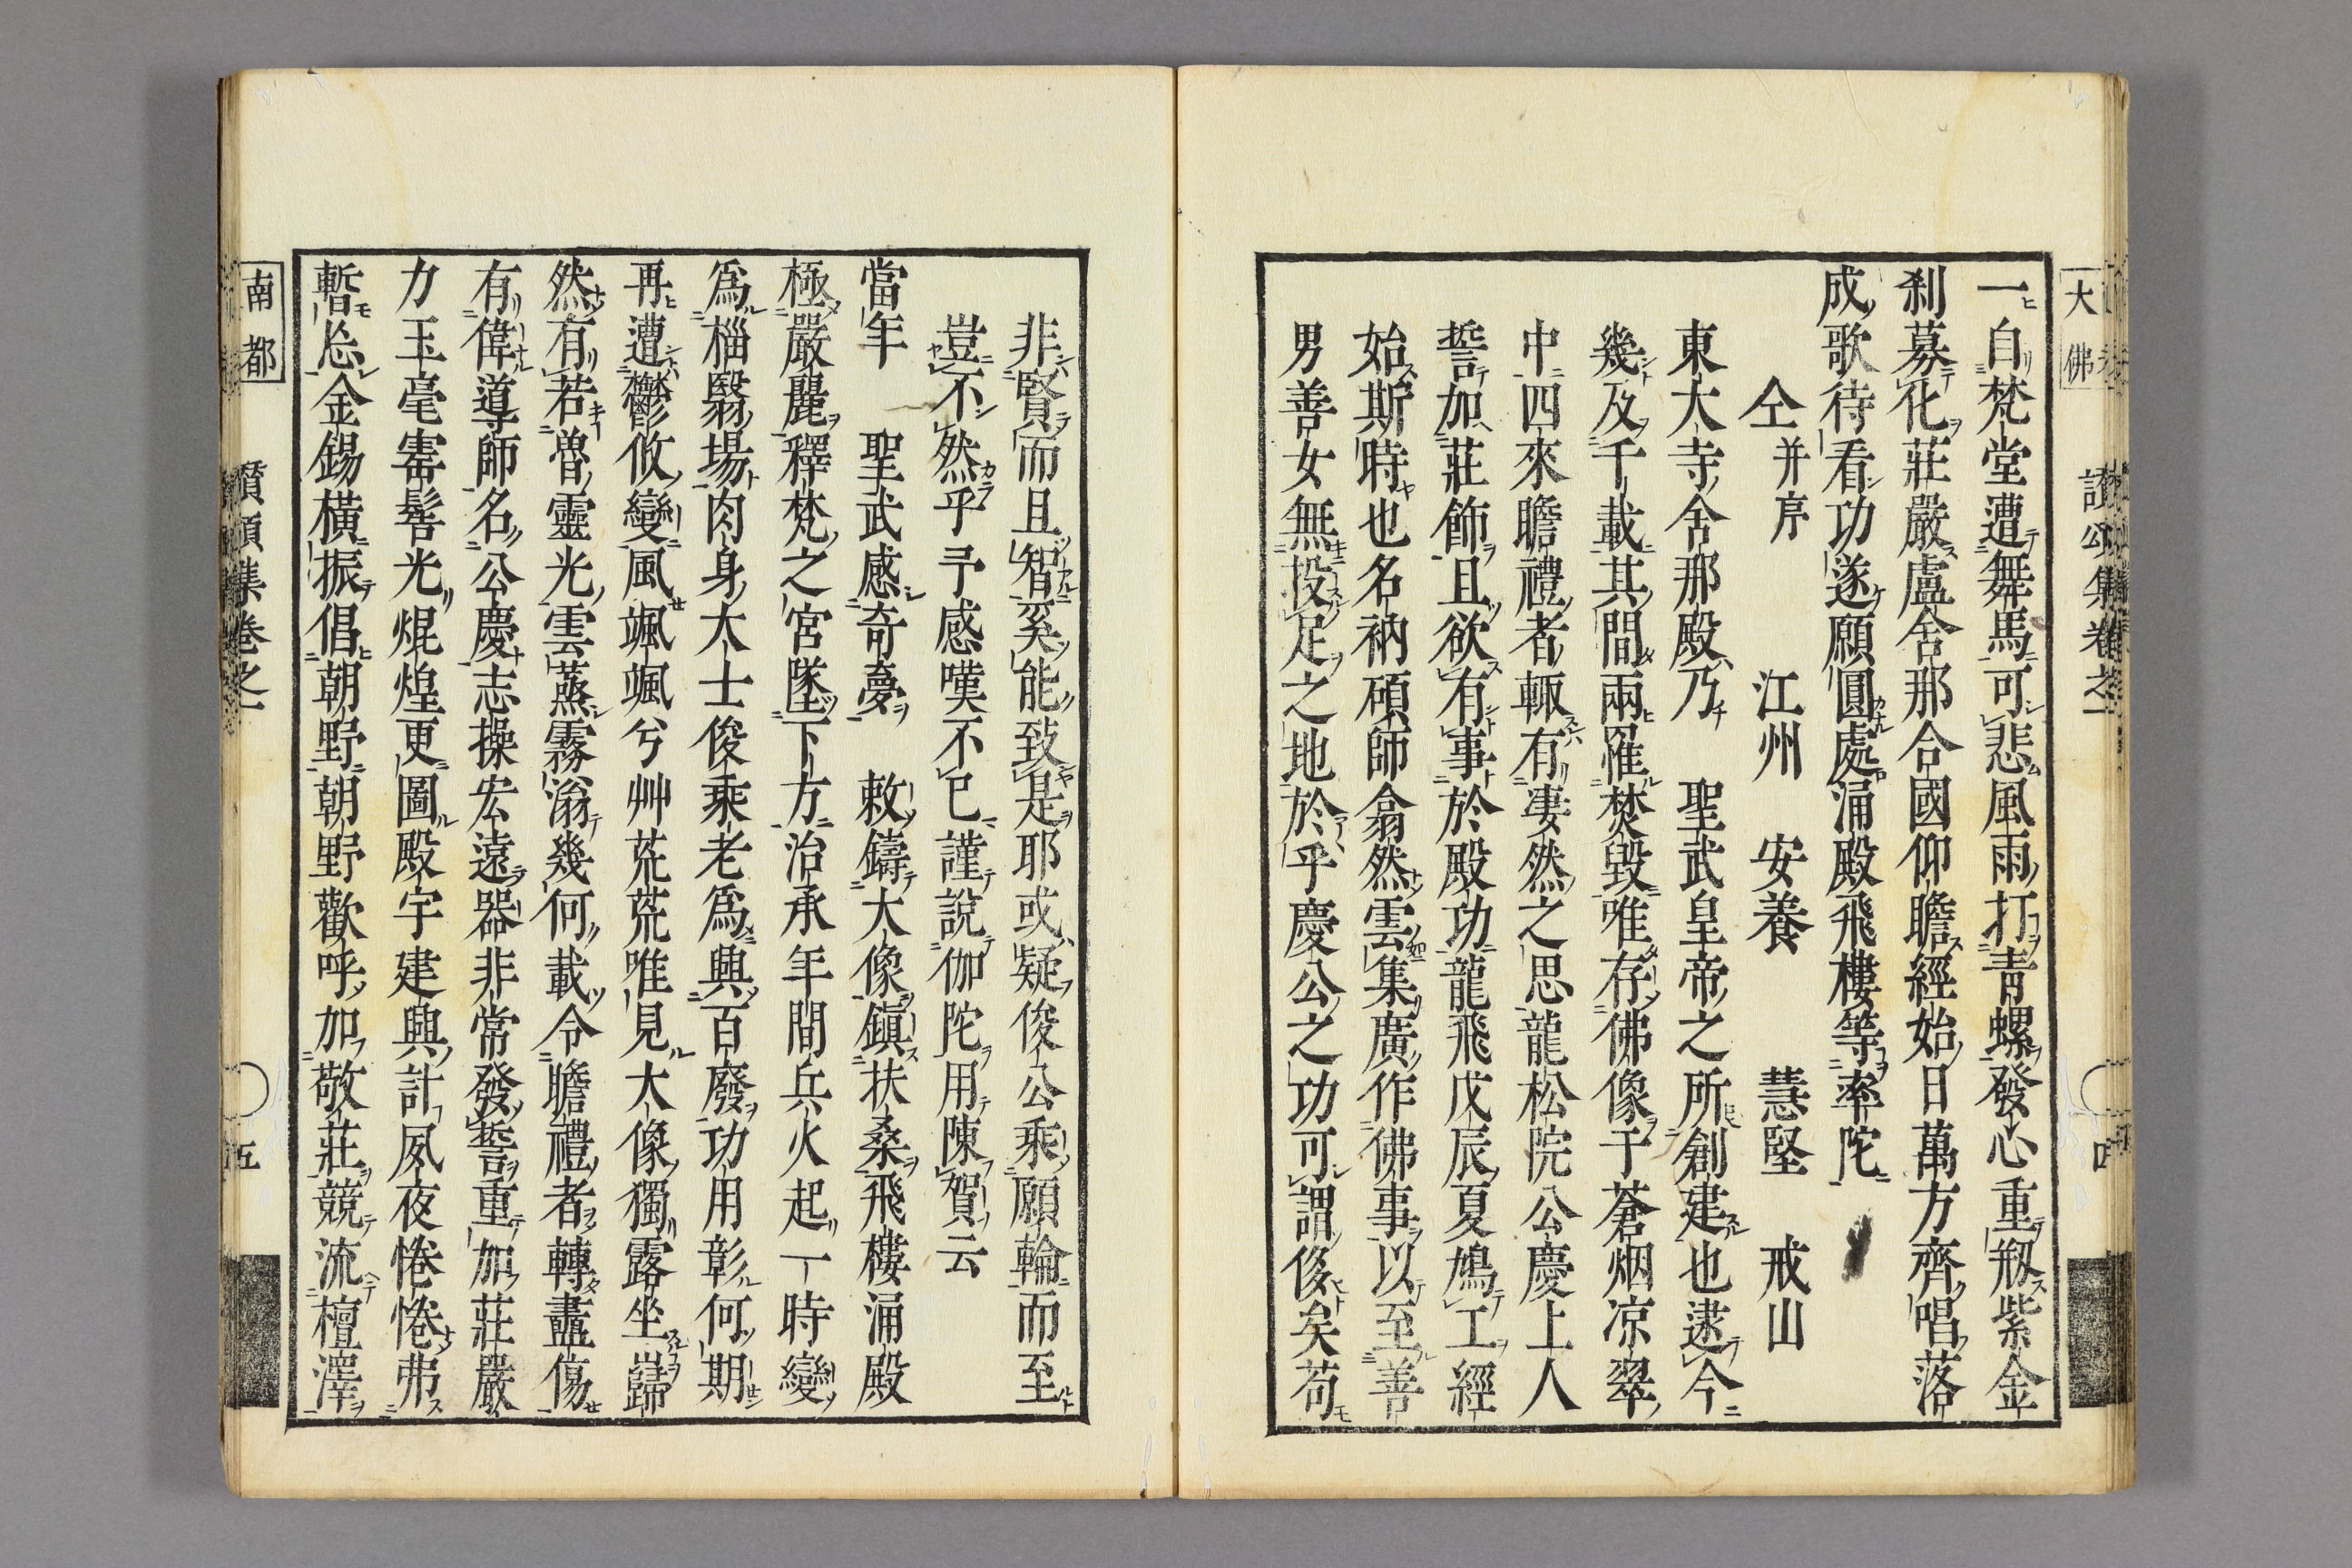 大佛
讃頌集卷之一
四
一自梵堂遭舞馬可悲風雨打青螺發心重剏紫金
刹募化莊嚴盧舍那合國仰瞻經始日萬方齊唱落
成歌待看功遂願圓處涌殿飛樓等率陀
仝并序 江州 安養 慧堅 戒山
東大寺舍那殿乃 聖武皇帝之所創建也逮今
幾及千載其間兩罹焚毀唯存佛像于蒼烟凉翠
中四來瞻禮者輙有凄然之思龍松院公慶上人
誓加莊飾且欲有事於殿功龍飛戊辰夏鳩工經
始斯時也名衲碩師翕然雲集廣作佛事以至善
男善女無投足之地於乎慶公之功可謂偉矣苟
非賢而且智奚能致是耶或疑俊公乘願輪而至
豈不然乎予感嘆不已謹說伽陀用陳賀云
當年 聖武感奇夢 敕鑄大像鎭扶桑飛樓涌殿
極嚴麗釋梵之宮墜下方治承年間兵火起一時變
爲椔翳場肉身大士俊乘老爲興百廢功用彰何期
再遭鬱攸變風颯颯兮艸荒荒唯見大像獨露坐巋
然有若魯靈光雲蒸霧滃幾何載令瞻禮者轉盡傷
有偉導師名公慶志操宏遠器非常發誓重加莊嚴
力玉毫寄髻光焜煌更圖殿宇建興計夙夜惓惓弗
暫忘金錫橫振倡朝野朝野歡呼加敬莊競流檀澤
南都
賛頌集卷之一
五